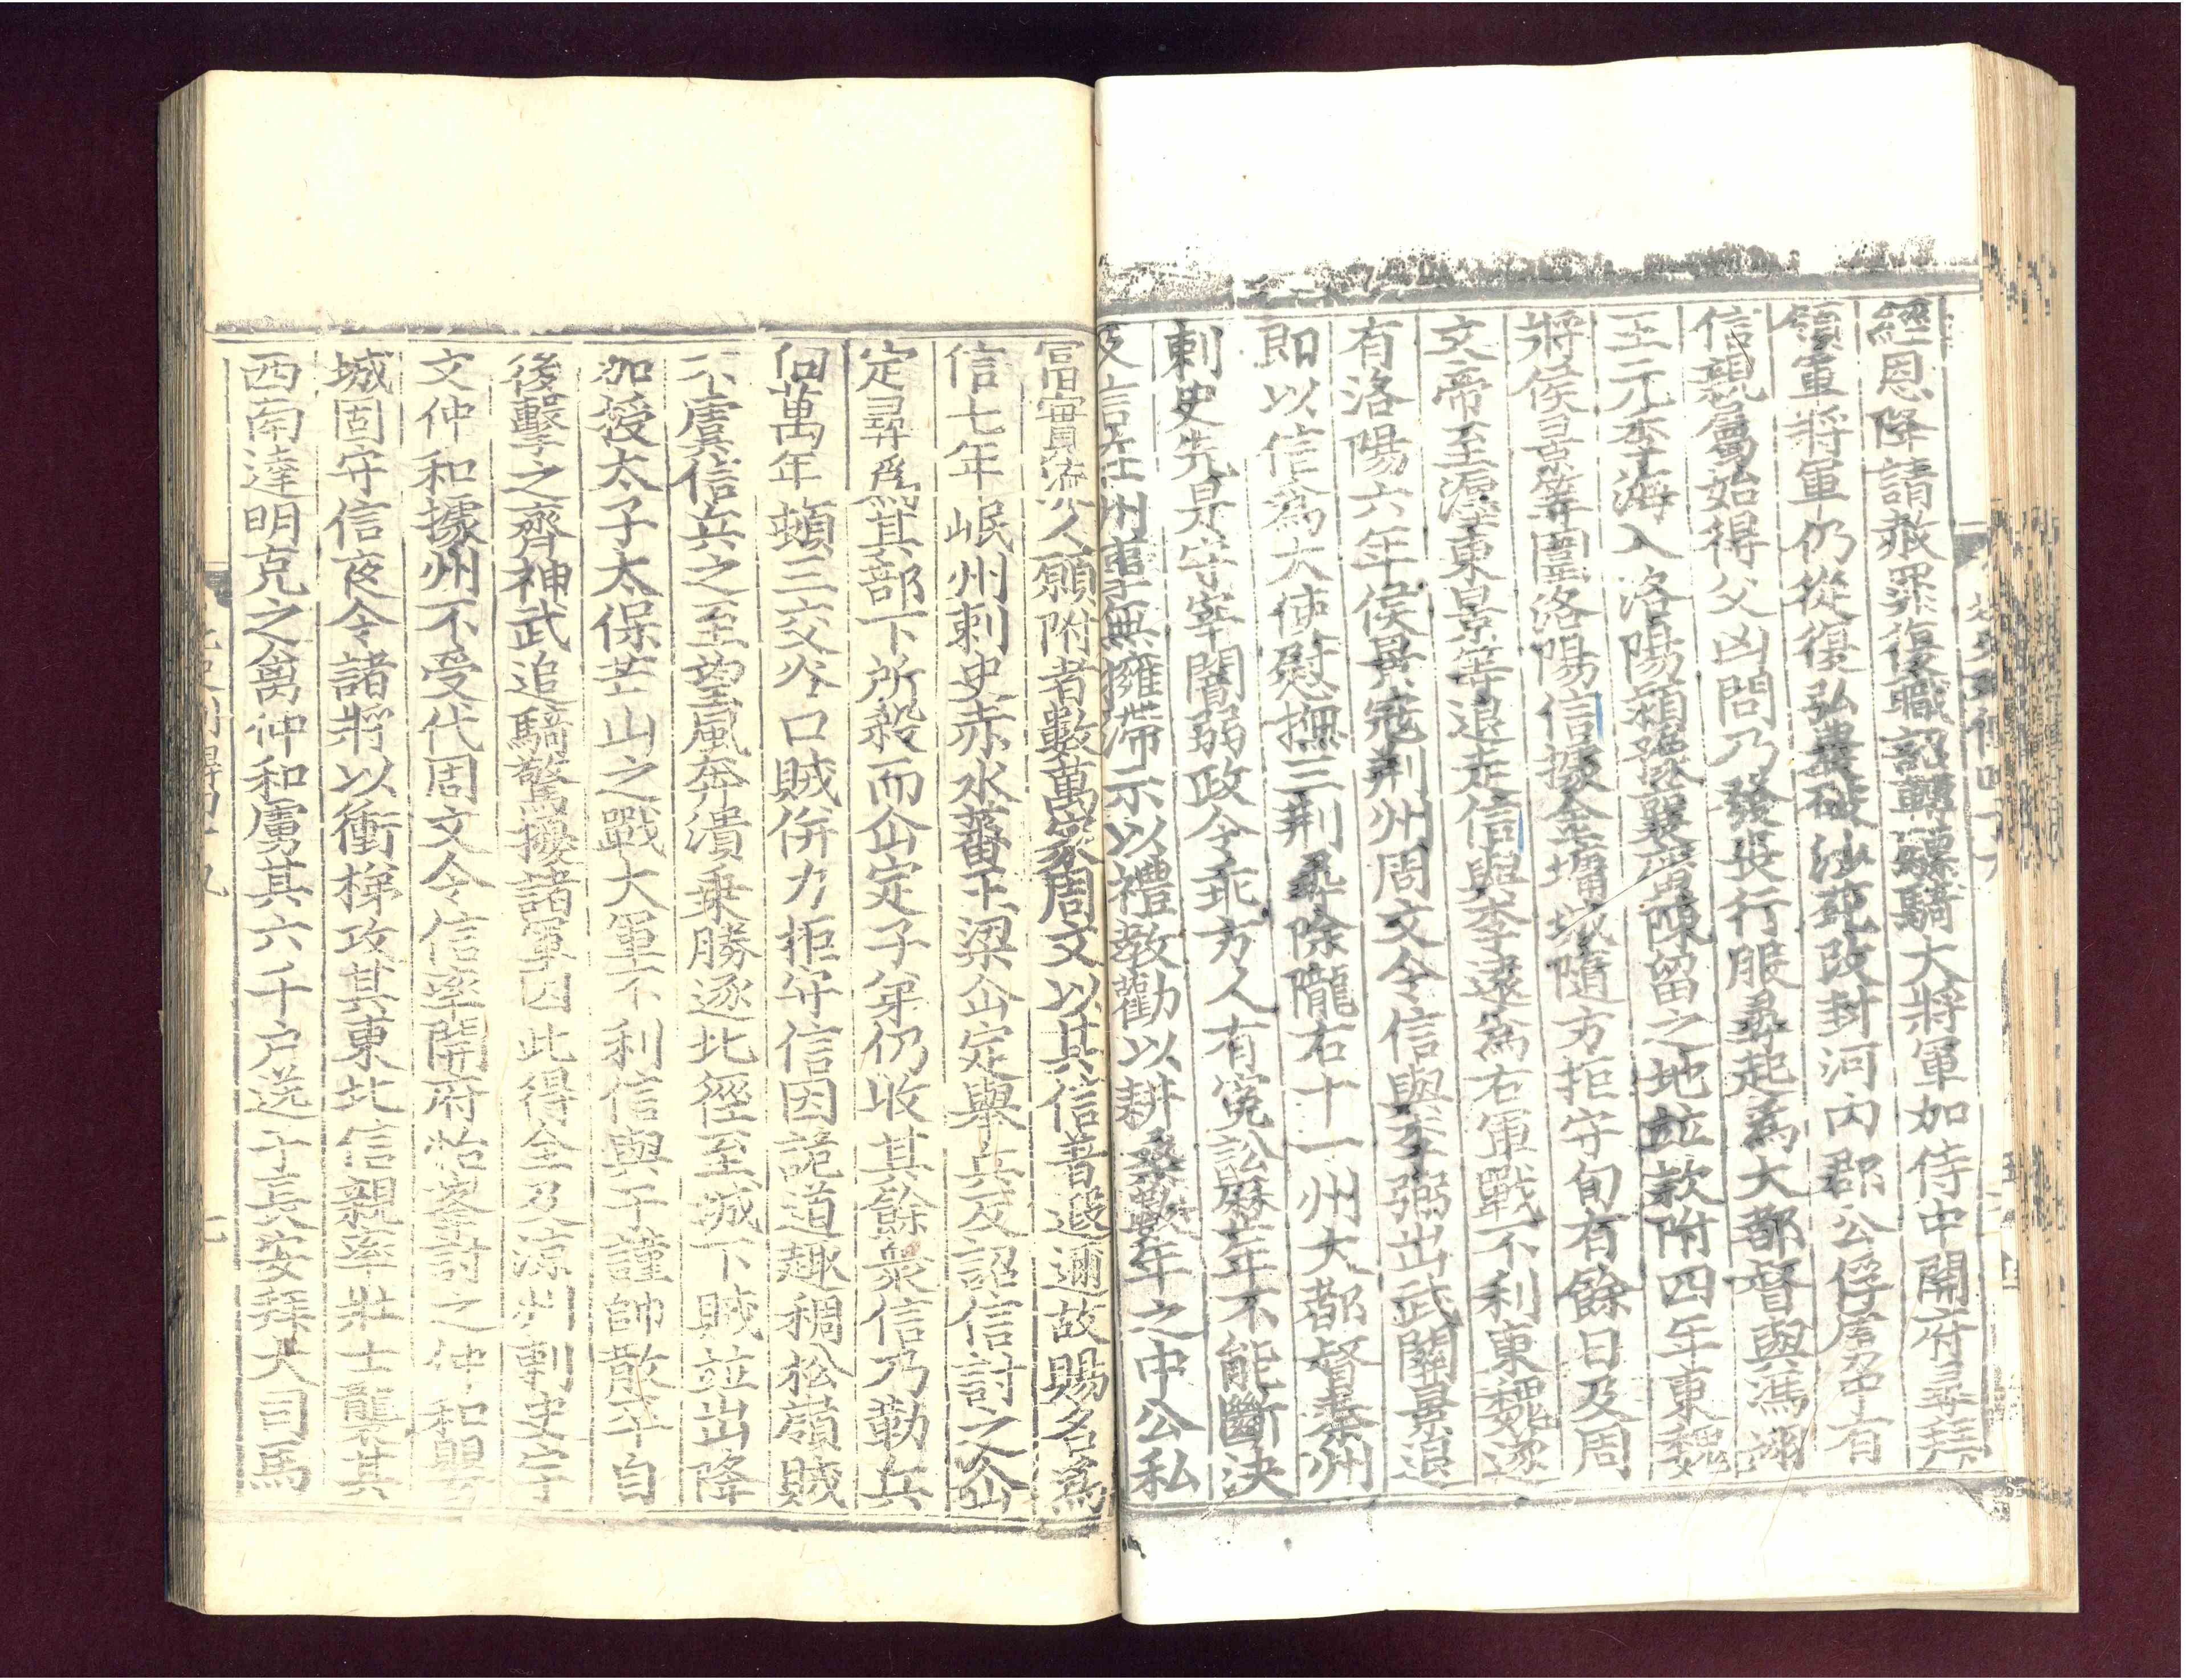 經恩降請赦罪復職詔轉驃騎大將軍加侍中開府尋拜
領軍將軍仍從復弘農破沙苑改封河內郡公俘虜中有
信親屬始得父凶問乃發喪行服尋起爲大都督與馮翊
王元季海入洛陽潁豫襄廣陳留之地並款附四年東魏
將侯景等圍洛陽信據金墉城隨方拒守旬有餘日及周
文帝至瀍東景等退走信與李遠爲右軍戰不利東魏遂
有洛陽六年侯景寇荆州周文令信與李弼出武關景退
即以信爲大使慰撫三荆尋除隴右十一州大都督秦州
剌史先是守宰闇弱政令乖方人有寃訟歷年不能斷決
及信在州事無擁滯示以禮教勸以耕桑數年之中公私
富實流人願附者數萬家周文以其信著遐邇故賜名爲
信七年岷州剌史赤水蕃王梁仚定舉兵反詔信討之仚
定尋爲其部下所殺而仚定子弟仍收其餘衆信乃勒兵
向萬年頓三交谷口賊併力拒守信因詭道趣稠松嶺賊
不虞信兵之至望風奔潰乗勝逐北徑至城下賊並出降
加授太子太保芒山之戰大軍不利信與于謹帥散卒自
後擊之齊神武追騎驚擾諸軍因此得全及凉州剌史宇
文仲和據州不受代周文令信率開府怡峯討之仲和嬰
城固守信夜令諸將以衝梯攻其東北信親率壯士襲其
西南達明克之禽仲和虜其六千戶送于長安拜大司馬